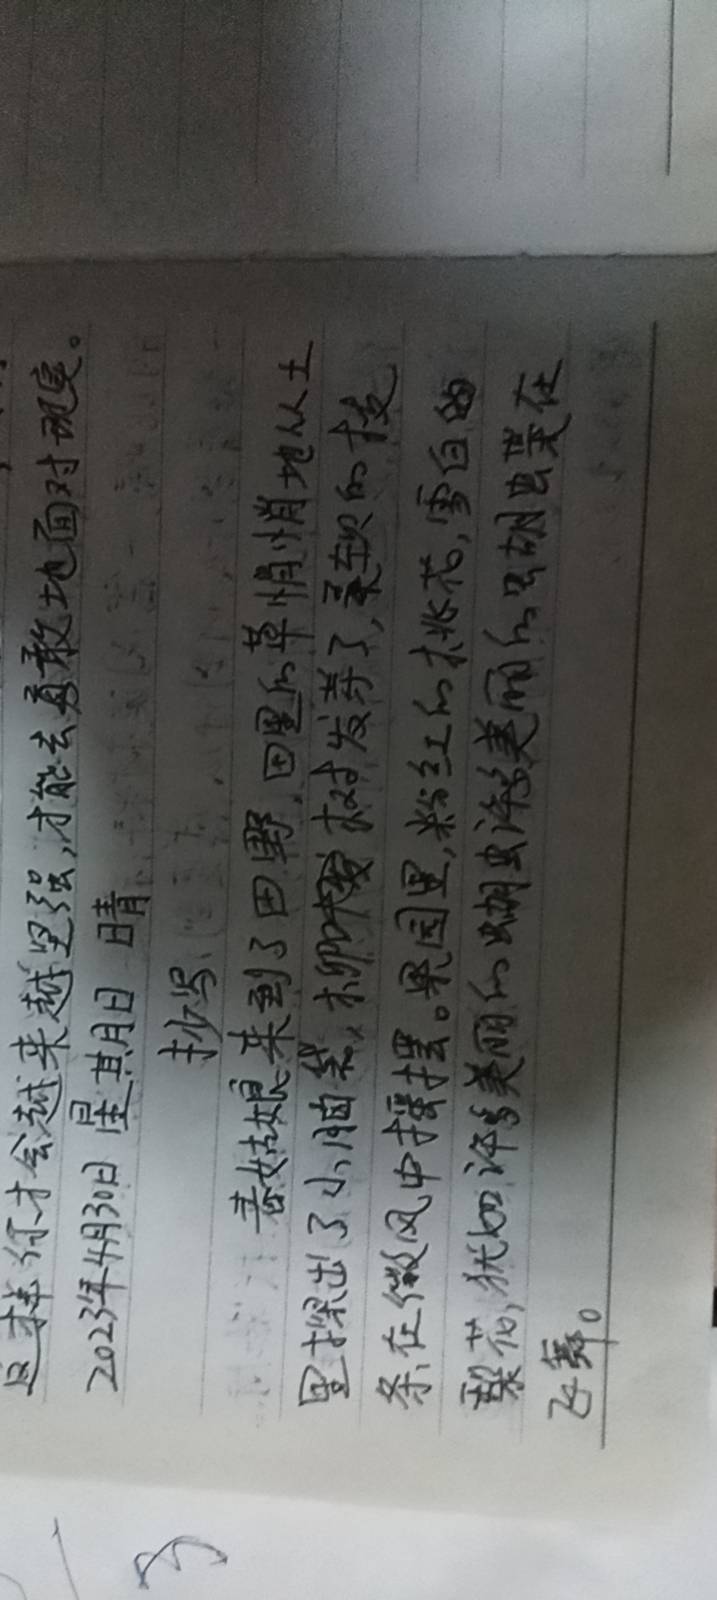 这样你才会越来越坚强,才能去勇敢地面对现实。
2023年4月30日 星期日 晴
抄写
春姑娘来到了田野,田里的草悄悄地从土
里探出了小脑袋,柳树发芽了,柔软的枝
条在微风中摇摆。果园里,粉红的桃花,雪白的
梨花,犹如许多美丽的蝴蝶许多美丽的蝴蝶在
飞舞。